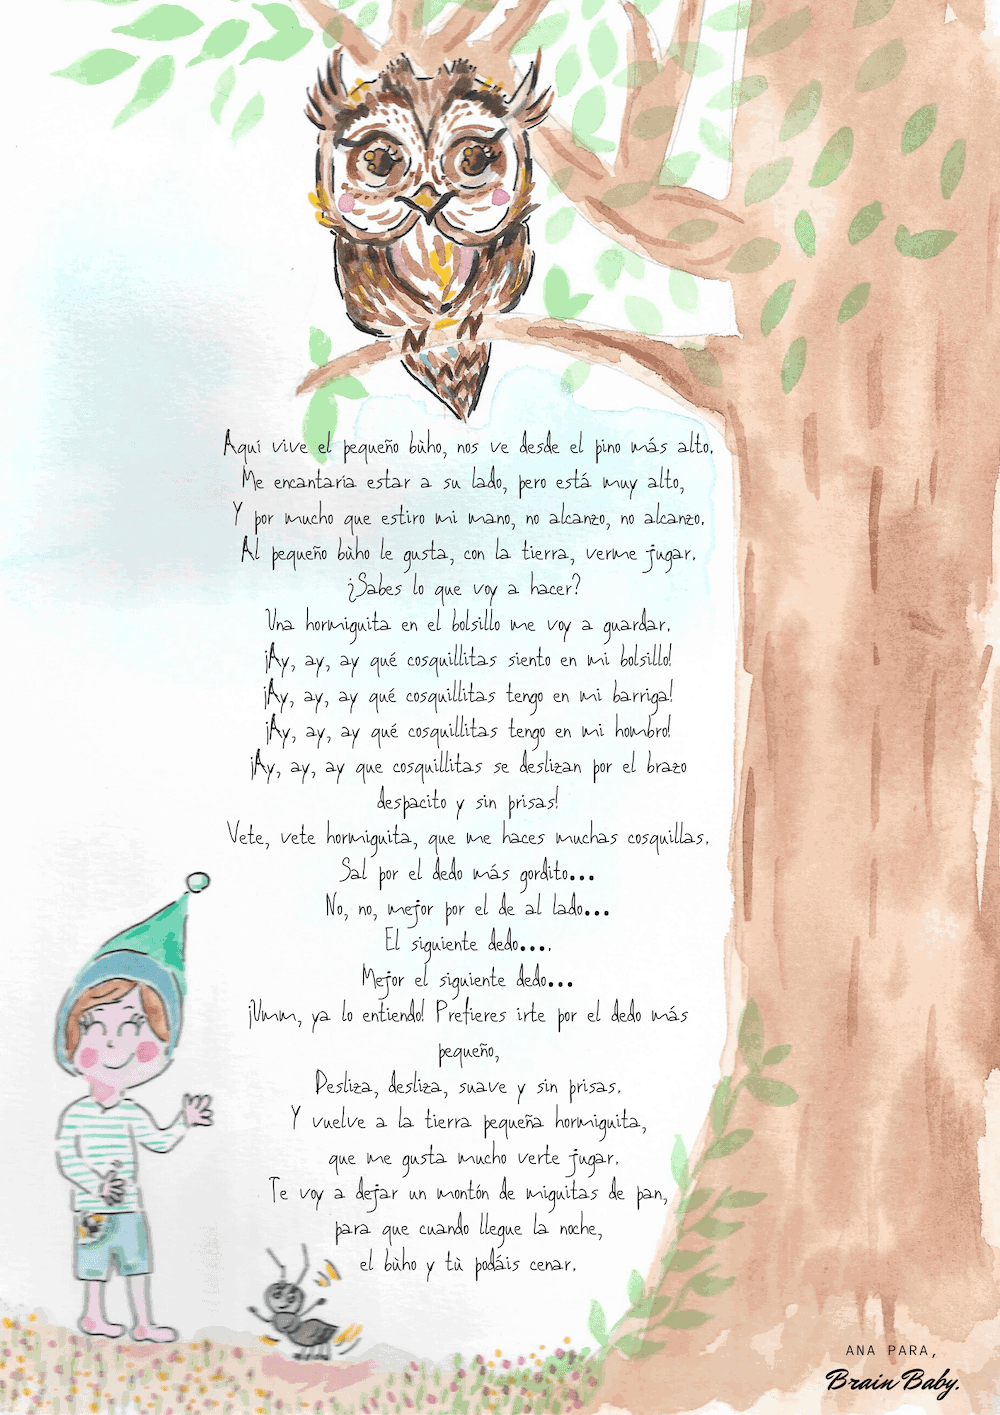 Aquí vive el pequeño bùho, nos ve desde el pino más alto.
Me encantaría estar a su lado, pero está muy alto,
Y por mucho que estiro mi mano, no alcanzo, no alcanzo.
Al pequeño bùho le gusta, con la tierra, verme jugar.
¿Sabes lo que voy a hacer?
Una hormiguita en el bolsillo me voy a guardar.
¡Ay, ay, ay qué cosquillitas siento en mi bolsillo!
¡Ay, ay, ay qué cosquillitas tengo en mi barriga!
¡Ay, ay, ay qué cosquillitas tengo en mi hombro!
¡Ay, ay, ay que cosquillitas se deslizan por el brazo
despacito y sin prisas!
Vete, vete hormiguita, que me haces muchas cosquillas.
Sal por el dedo más gordito...
No, no, mejor por el de al lado...
El siguiente dedo....
Mejor el siguiente dedo...
¡Umm, ya lo entiendo! Prefieres irte por el dedo más
pequeño,
Desliza, desliza, suave y sin prisas.
Y vuelve a la tierra pequeña hormiguita,
que me gusta mucho verte jugar.
Te voy a dejar un montón de miguitas de pan,
para que cuando llegue la noche,
el bùho y tù podáis cenar.
ANA PARA,
Brain Baby.